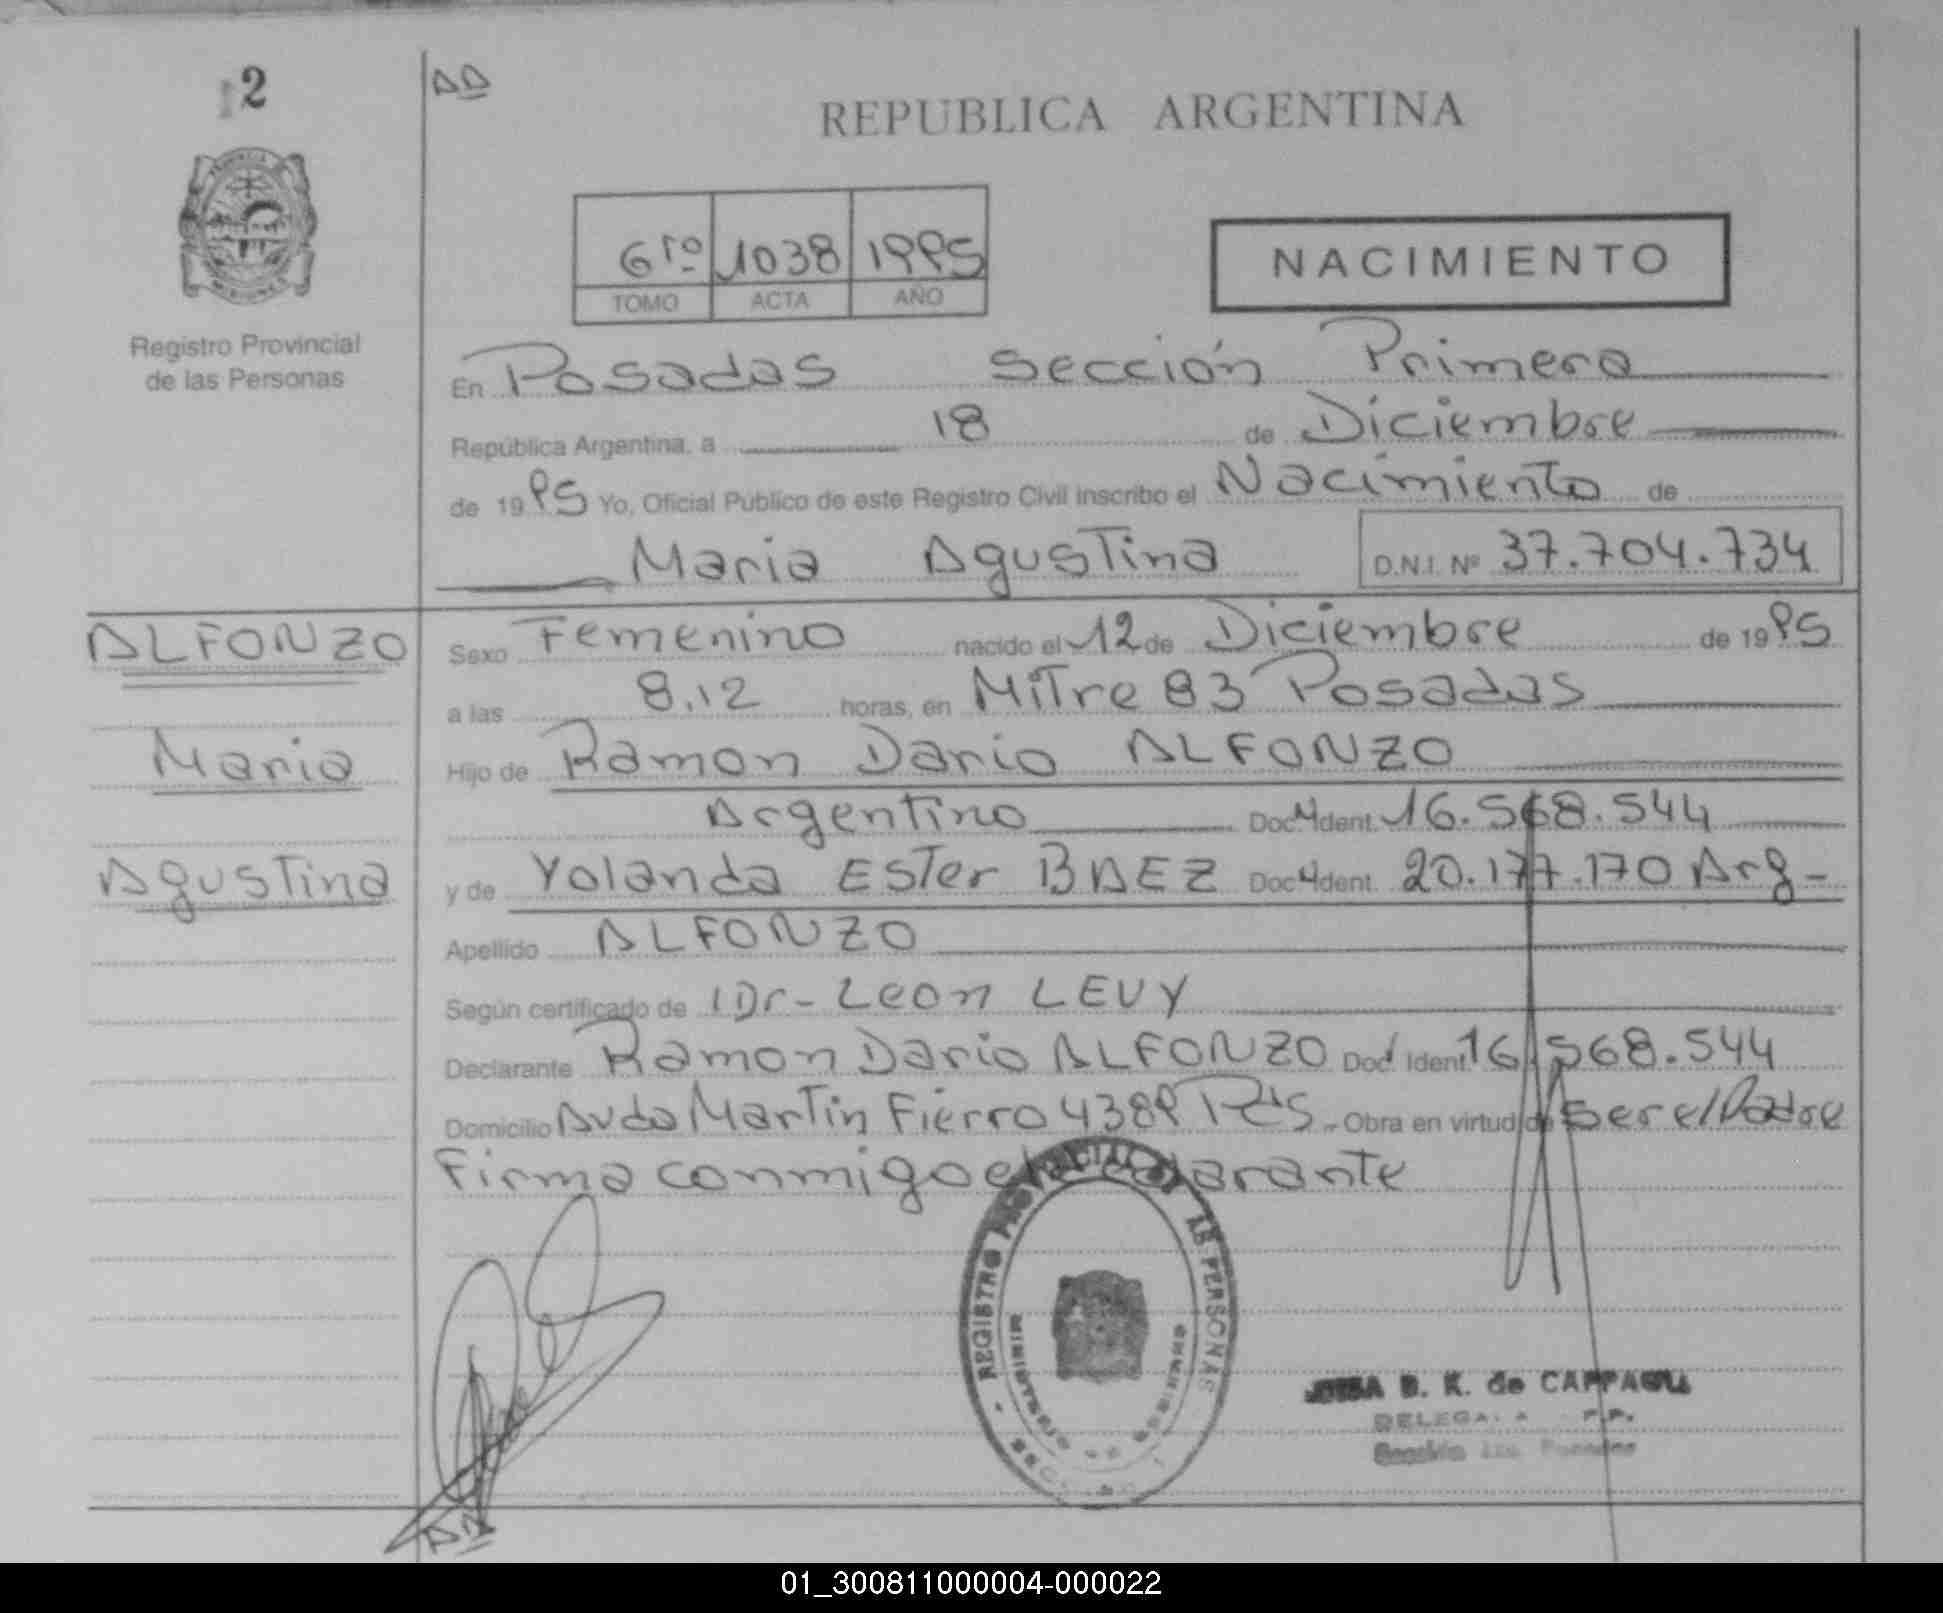 2
DD
REPUBLICA ARGENTINA
6to 1038 1995
TOMO ACTA AÑO
NACIMIENTO
Registro Provincial
de las Personas
En Posadas Sección Primera
República Argentina, a 18 de Diciembre
de 1995 Yo, Oficial Público de este Registro Civil inscribo el Nacimiento de
Maria Agustina D.N.I. Nº 37.704.734
ALFONZO
Maria
Agustina
Sexo Femenino nacido el 12 de Diciembre de 1995
a las 8.12 horas, en Mitre 83 Posadas
Hijo de Ramon Dario ALFONZO
Argentino Doc. Ident. 16.568.544
y de Yolanda Ester BAEZ Doc. Ident. 20.177.170 Arg-
Apellido ALFONZO
Según certificado de Dr- Leon LEVY
Declarante Ramon Dario ALFONZO Doc. Ident. 16.568.544
Domicilio Avda Martin Fierro 4389 Pds.- Obra en virtud de ser el Padre
Firma conmigo el declarante
REGISTRO PROVINCIAL DE LAS PERSONAS
MINISTERIO DE GOBIERNO
B. K. de CAPPAGLI
01_300811000004-000022